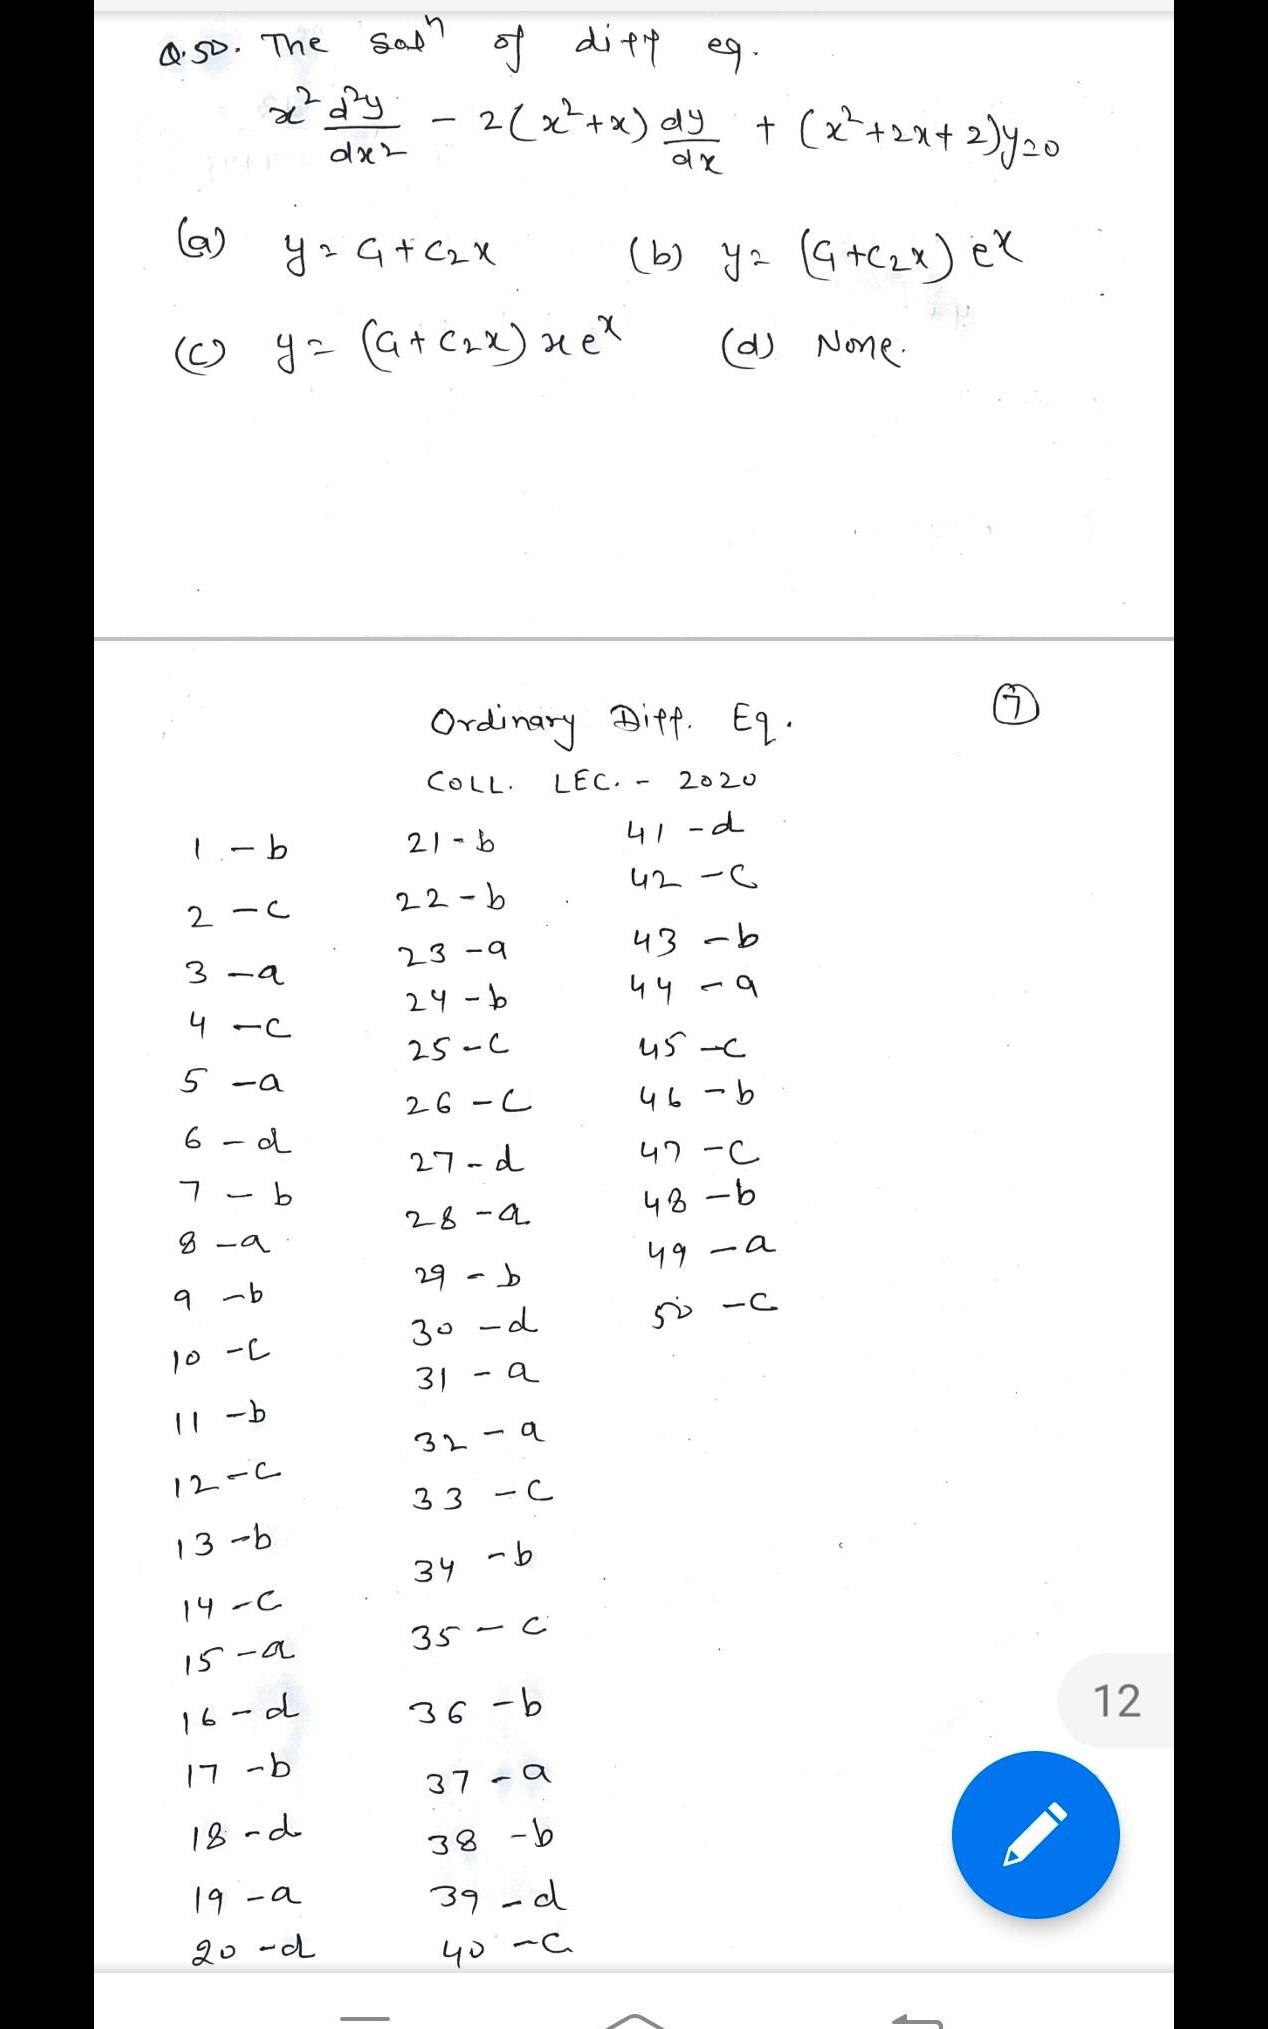 Q.50. The solⁿ of diff eq.
x² d²y/dx² - 2(x²+x) dy/dx + (x²+2x+2)y=0
(a) y = C₁+C₂x (b) y = (C₁+C₂x) eˣ
(c) y = (C₁+C₂x) x eˣ (d) None.
Ordinary Diff. Eq. 7
COLL. LEC. - 2020
1 - b 21 - b 41 - d
2 - c 22 - b 42 - c
3 - a 23 - a 43 - b
4 - c 24 - b 44 - a
5 - a 25 - c 45 - c
6 - d 26 - c 46 - b
7 - b 27 - d 47 - c
8 - a 28 - a 48 - b
9 - b 29 - b 49 - a
10 - c 30 - d 50 - c
11 - b 31 - a
12 - c 32 - a
13 - b 33 - c
14 - c 34 - b
15 - a 35 - c
16 - d 36 - b
17 - b 37 - a
18 - d 38 - b
19 - a 39 - d
20 - d 40 - c
12